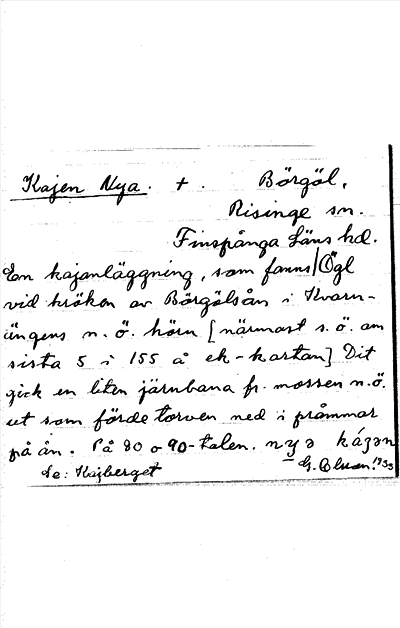 Kajen Nya. + . Börgöl,
Risinge sn.
Finspånga Läns hd.
En kajanläggning, som fanns/Ögl
vid kröken av Börgölsån i Kvarn-
ängens n.ö. hörn [närmast s.ö. om
sista 5 i 155 å ek-kartan] Dit
gick en liten järnbana fr. mossen n.ö.
ut som förde torven ned i pråmmar
på ån. På 80 o 90-talen. nya kájən
Se: Kajberget G.